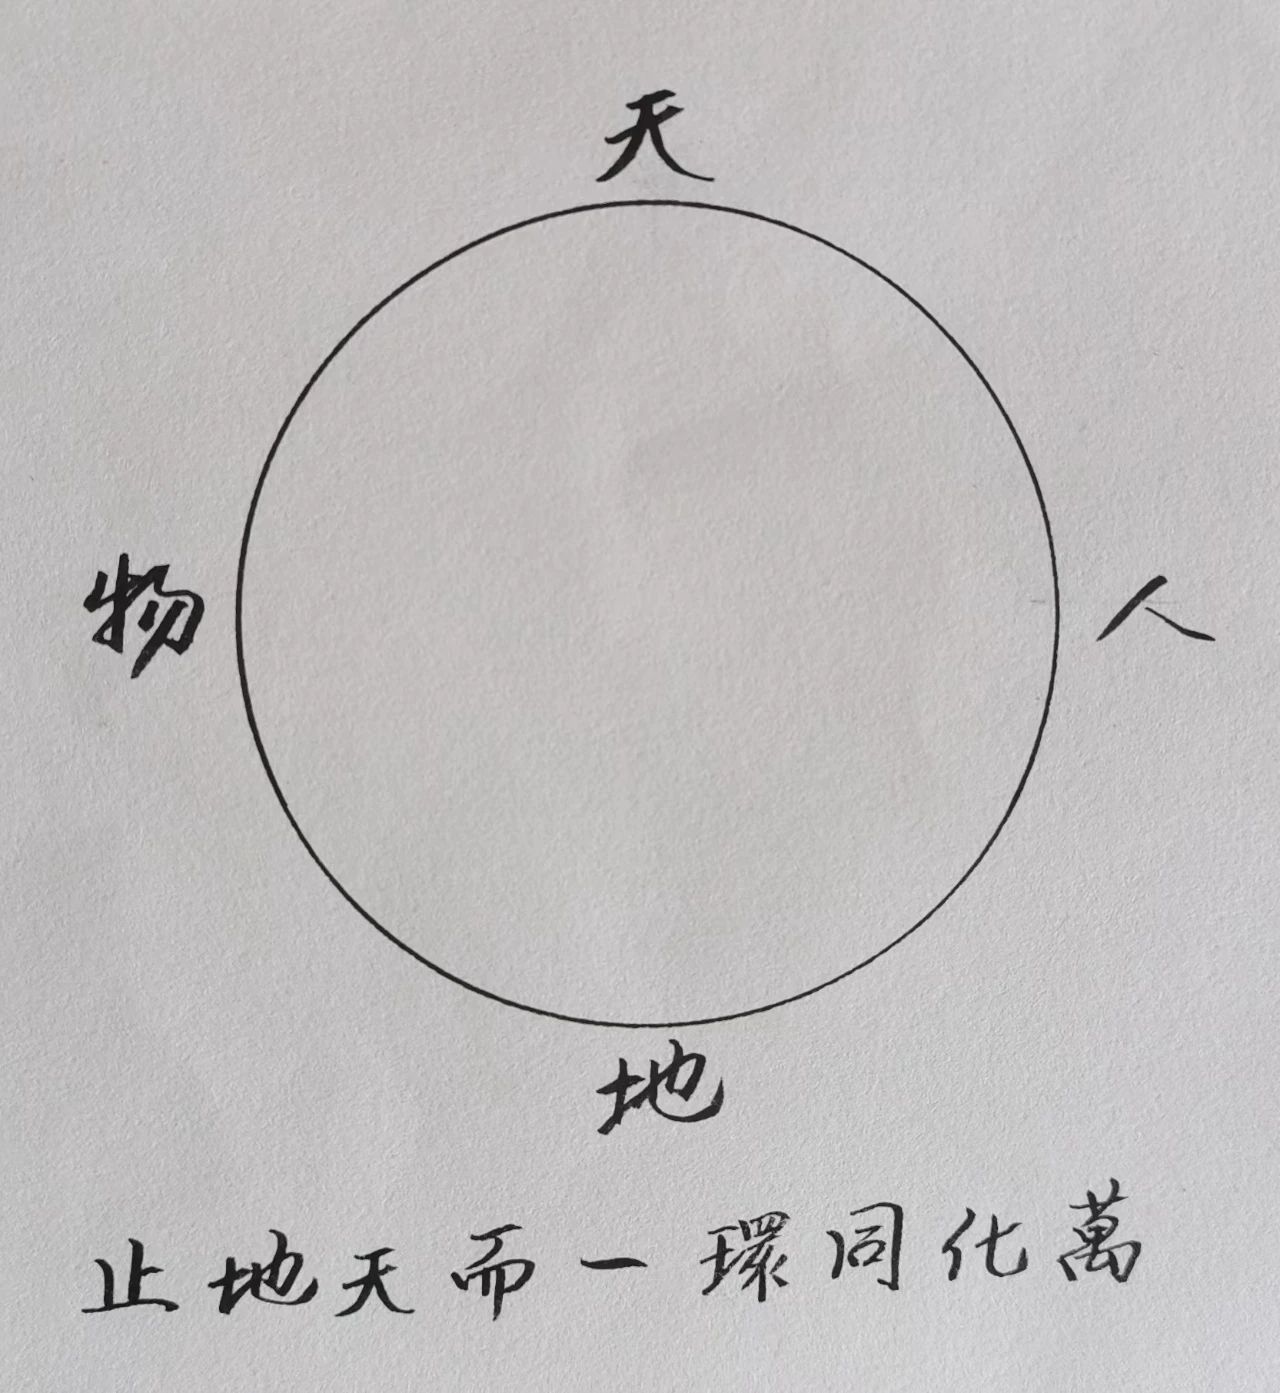 天
人
地
物
萬化同環一而天地止